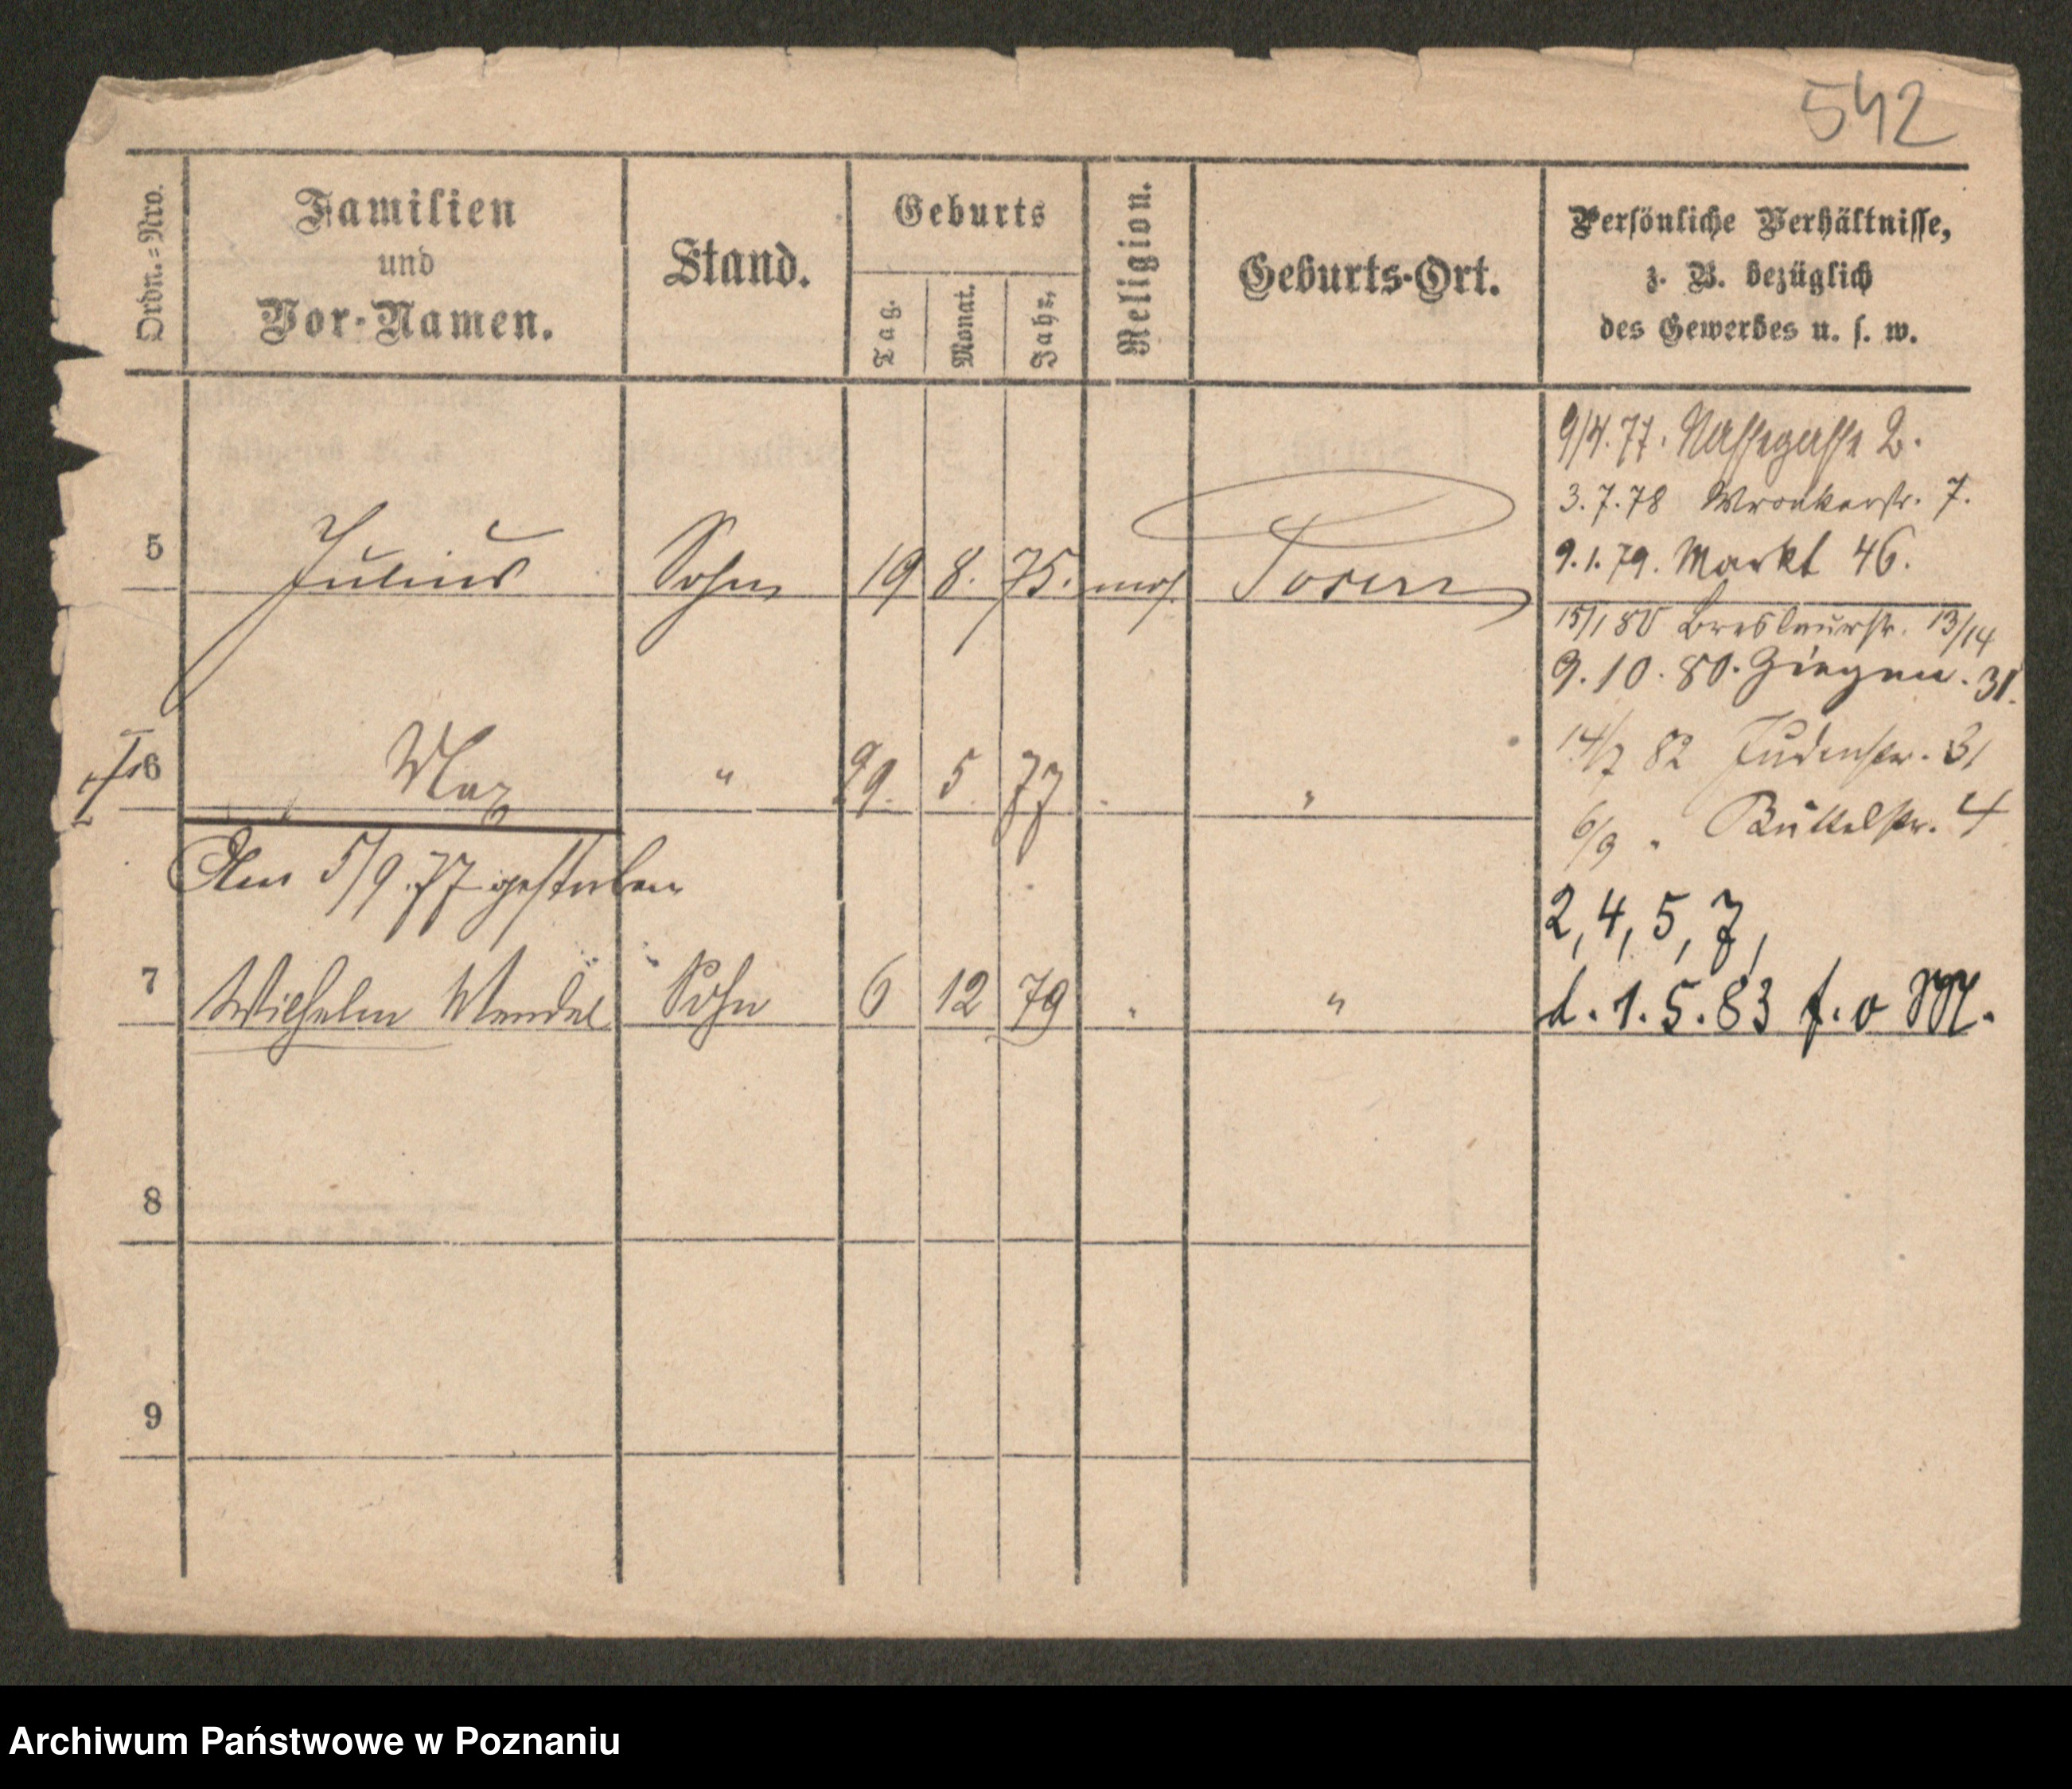 542
Ordn.=Nro.
Familien
und
Vor-Namen.
Stand.
Geburts
Tag.
Monat.
Jahr.
Religion.
Geburts-Ort.
Persönliche Verhältnisse,
z. B. bezüglich
des Gewerbes u. s. w.
9/4. 77. Nassegasse 2.
3. 7. 78 Wronkerstr. 7.
9. 1. 79. Markt 46.
5 Julius Sohn 19 8. 75. mos. Posen
15/1 80 Breslauerstr. 13/14
9. 10. 80. Ziegen. 31.
14/7 82 Judenstr. 31
6 Max " 29. 5. 77 "
6/9 " Büttelstr. 4
Am 5/9. 77 gestorben
2, 4, 5, 7,
7 Wilhelm Mendel Sohn 6 12 79 " "
d. 1. 5. 83 f. o M.
8
9
Archiwum Państwowe w Poznaniu